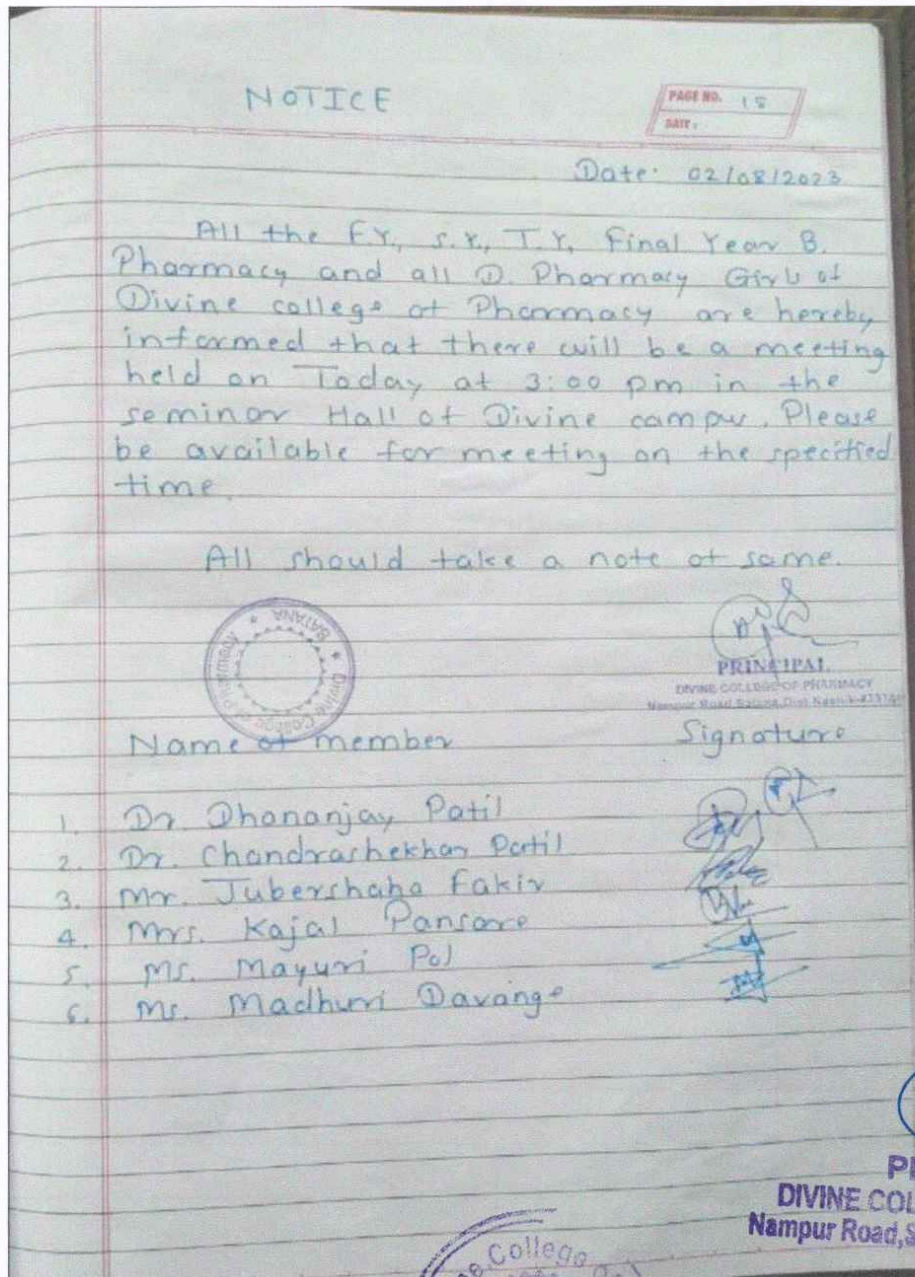 NOTICE
PAGE NO. 15
DATE:
Date: 02/08/2023
All the F.Y., S.Y., T.Y, Final Year B.
Pharmacy and all D. Pharmacy Girls of
Divine college of Pharmacy are hereby
informed that there will be a meeting
held on Today at 3:00 pm in the
seminor Hall of Divine campus. Please
be available for meeting on the specified
time.
All should take a note of same.
Divine College of Pharmacy
SATANA
PRINCIPAL
DIVINE COLLEGE OF PHARMACY
Nampur Road Satana, Dist Nashik
Name of member Signature
1. Dr. Dhananjay Patil
2. Dr. Chandrashekhar Patil
3. Mr. Jubershaha Fakir
4. Mrs. Kajal Pansare
5. Ms. Mayuri Pol
6. Ms. Madhuri Davange
DIVINE COL
Nampur Road,S
College